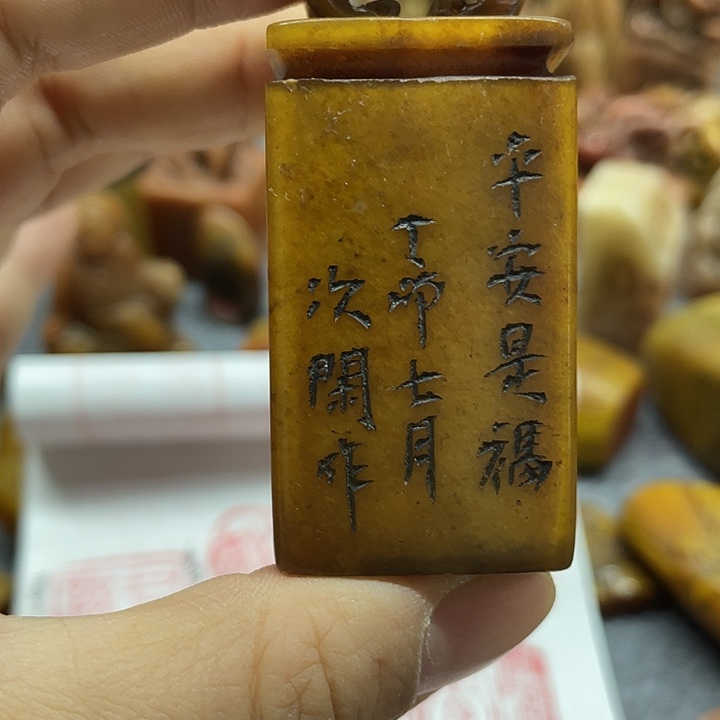 平安是福
丁卯七月
次閑作